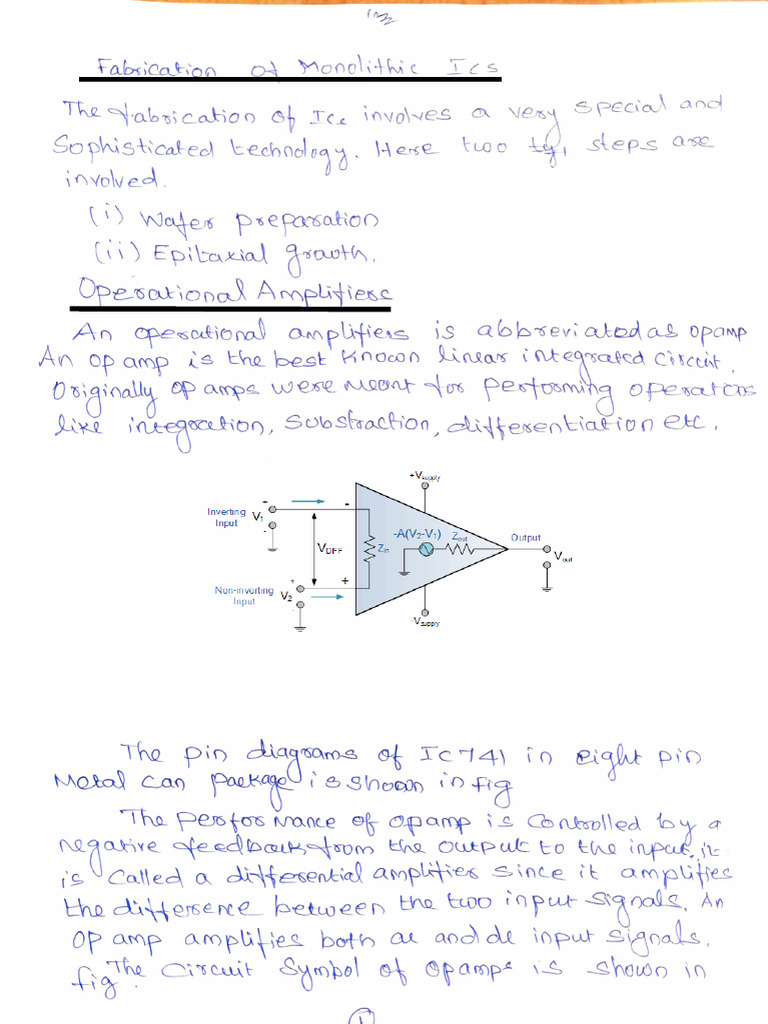 Fabrication of Monolithic Ics
The fabrication of Ics involves a very special and
Sophisticated technology. Here two steps are
involved.
(i) Wafer preparation
(ii) Epitaxial growth.
Operational Amplifiers
An operational amplifiers is abbreviated as opamp
An op amp is the best known linear integrated circuit.
Originally op amps were meant for performing operations
like integration, substraction, differentiation etc.
+Vsupply
Inverting
Input
V1
-
-
-
VDIFF
Zin
-A(V2-V1)
Zout
Output
Vout
Non-inverting
Input
V2
+
+
-Vsupply
The pin diagrams of IC741 in eight pin
Metal can package is shown in fig
The performance of opamp is controlled by a
negative feedback from the output to the input, it
is called a differential amplifier since it amplifies
the difference between the two input signals. An
op amp amplifies both ac and dc input signals.
The circuit symbol of opamps is shown in
fig.
1